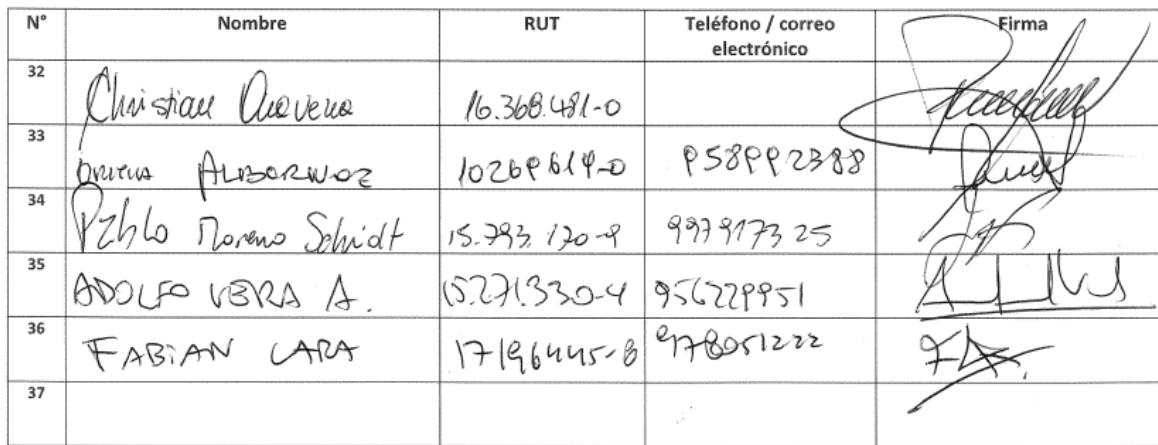 N° Nombre RUT Teléfono / correo electrónico Firma
32 Christian Aravena 16.368.481-0
33 ALBORNOZ 10269614-0 958992388
34 Pablo Moreno Schidt 15.793.170-9 997917325
35 ADOLFO VERA A. 15.271.330-4 956229951
36 FABIAN LARA 17196445-8 978051222
37